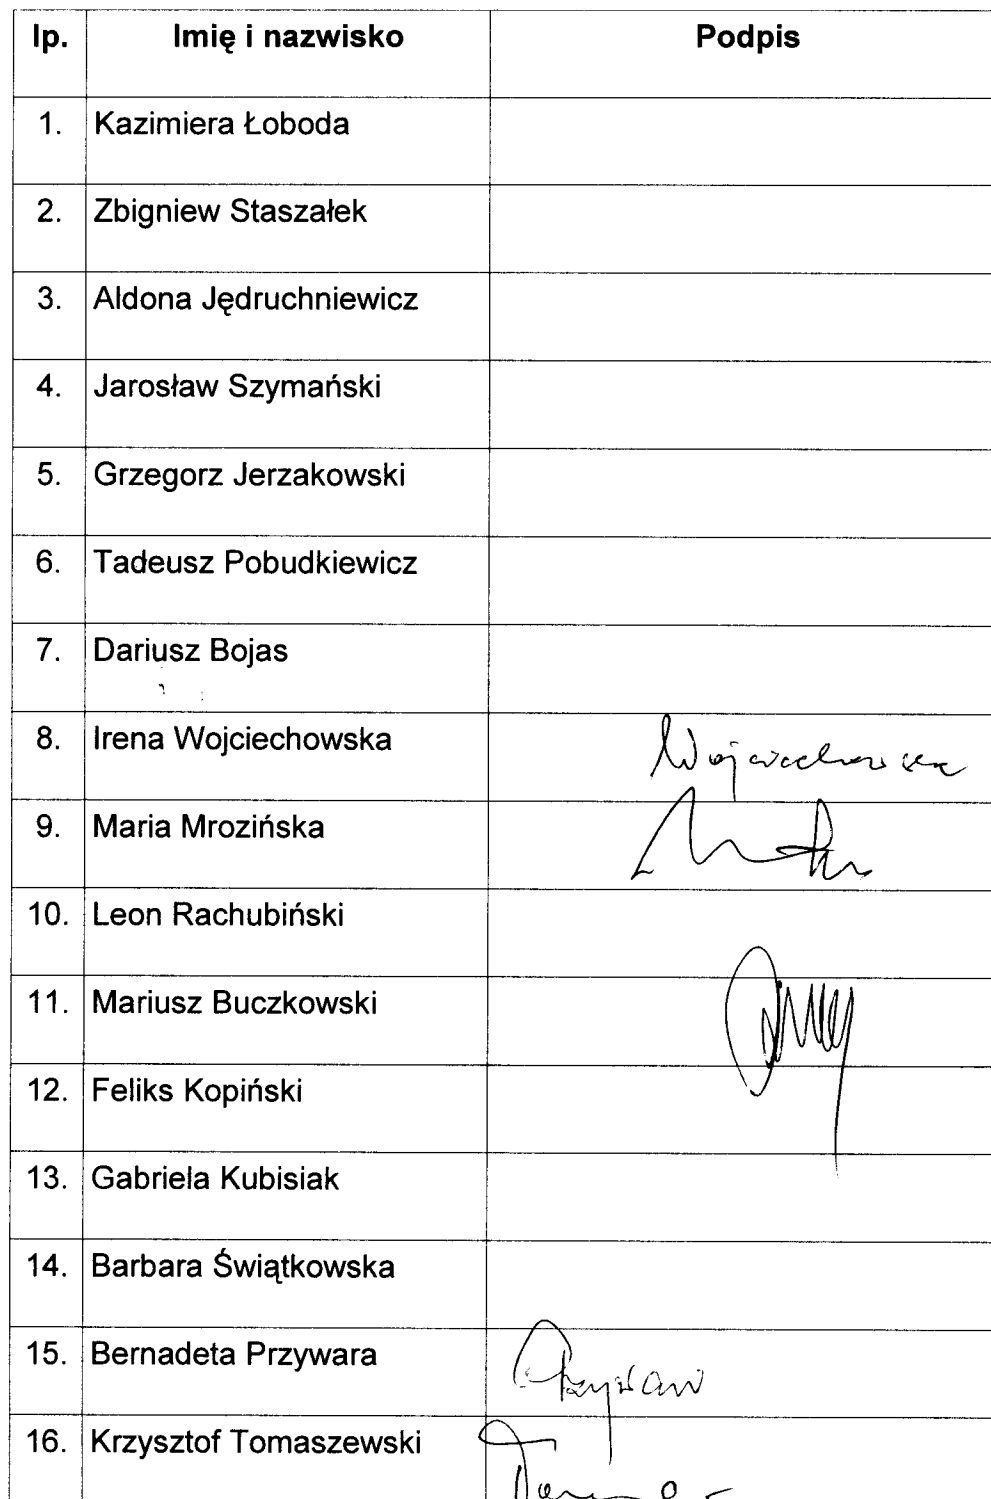 lp. Imię i nazwisko Podpis
1. Kazimiera Łoboda
2. Zbigniew Staszałek
3. Aldona Jędruchniewicz
4. Jarosław Szymański
5. Grzegorz Jerzakowski
6. Tadeusz Pobudkiewicz
7. Dariusz Bojas
8. Irena Wojciechowska Wojciechowska
9. Maria Mrozińska
10. Leon Rachubiński
11. Mariusz Buczkowski
12. Feliks Kopiński
13. Gabriela Kubisiak
14. Barbara Świątkowska
15. Bernadeta Przywara
16. Krzysztof Tomaszewski